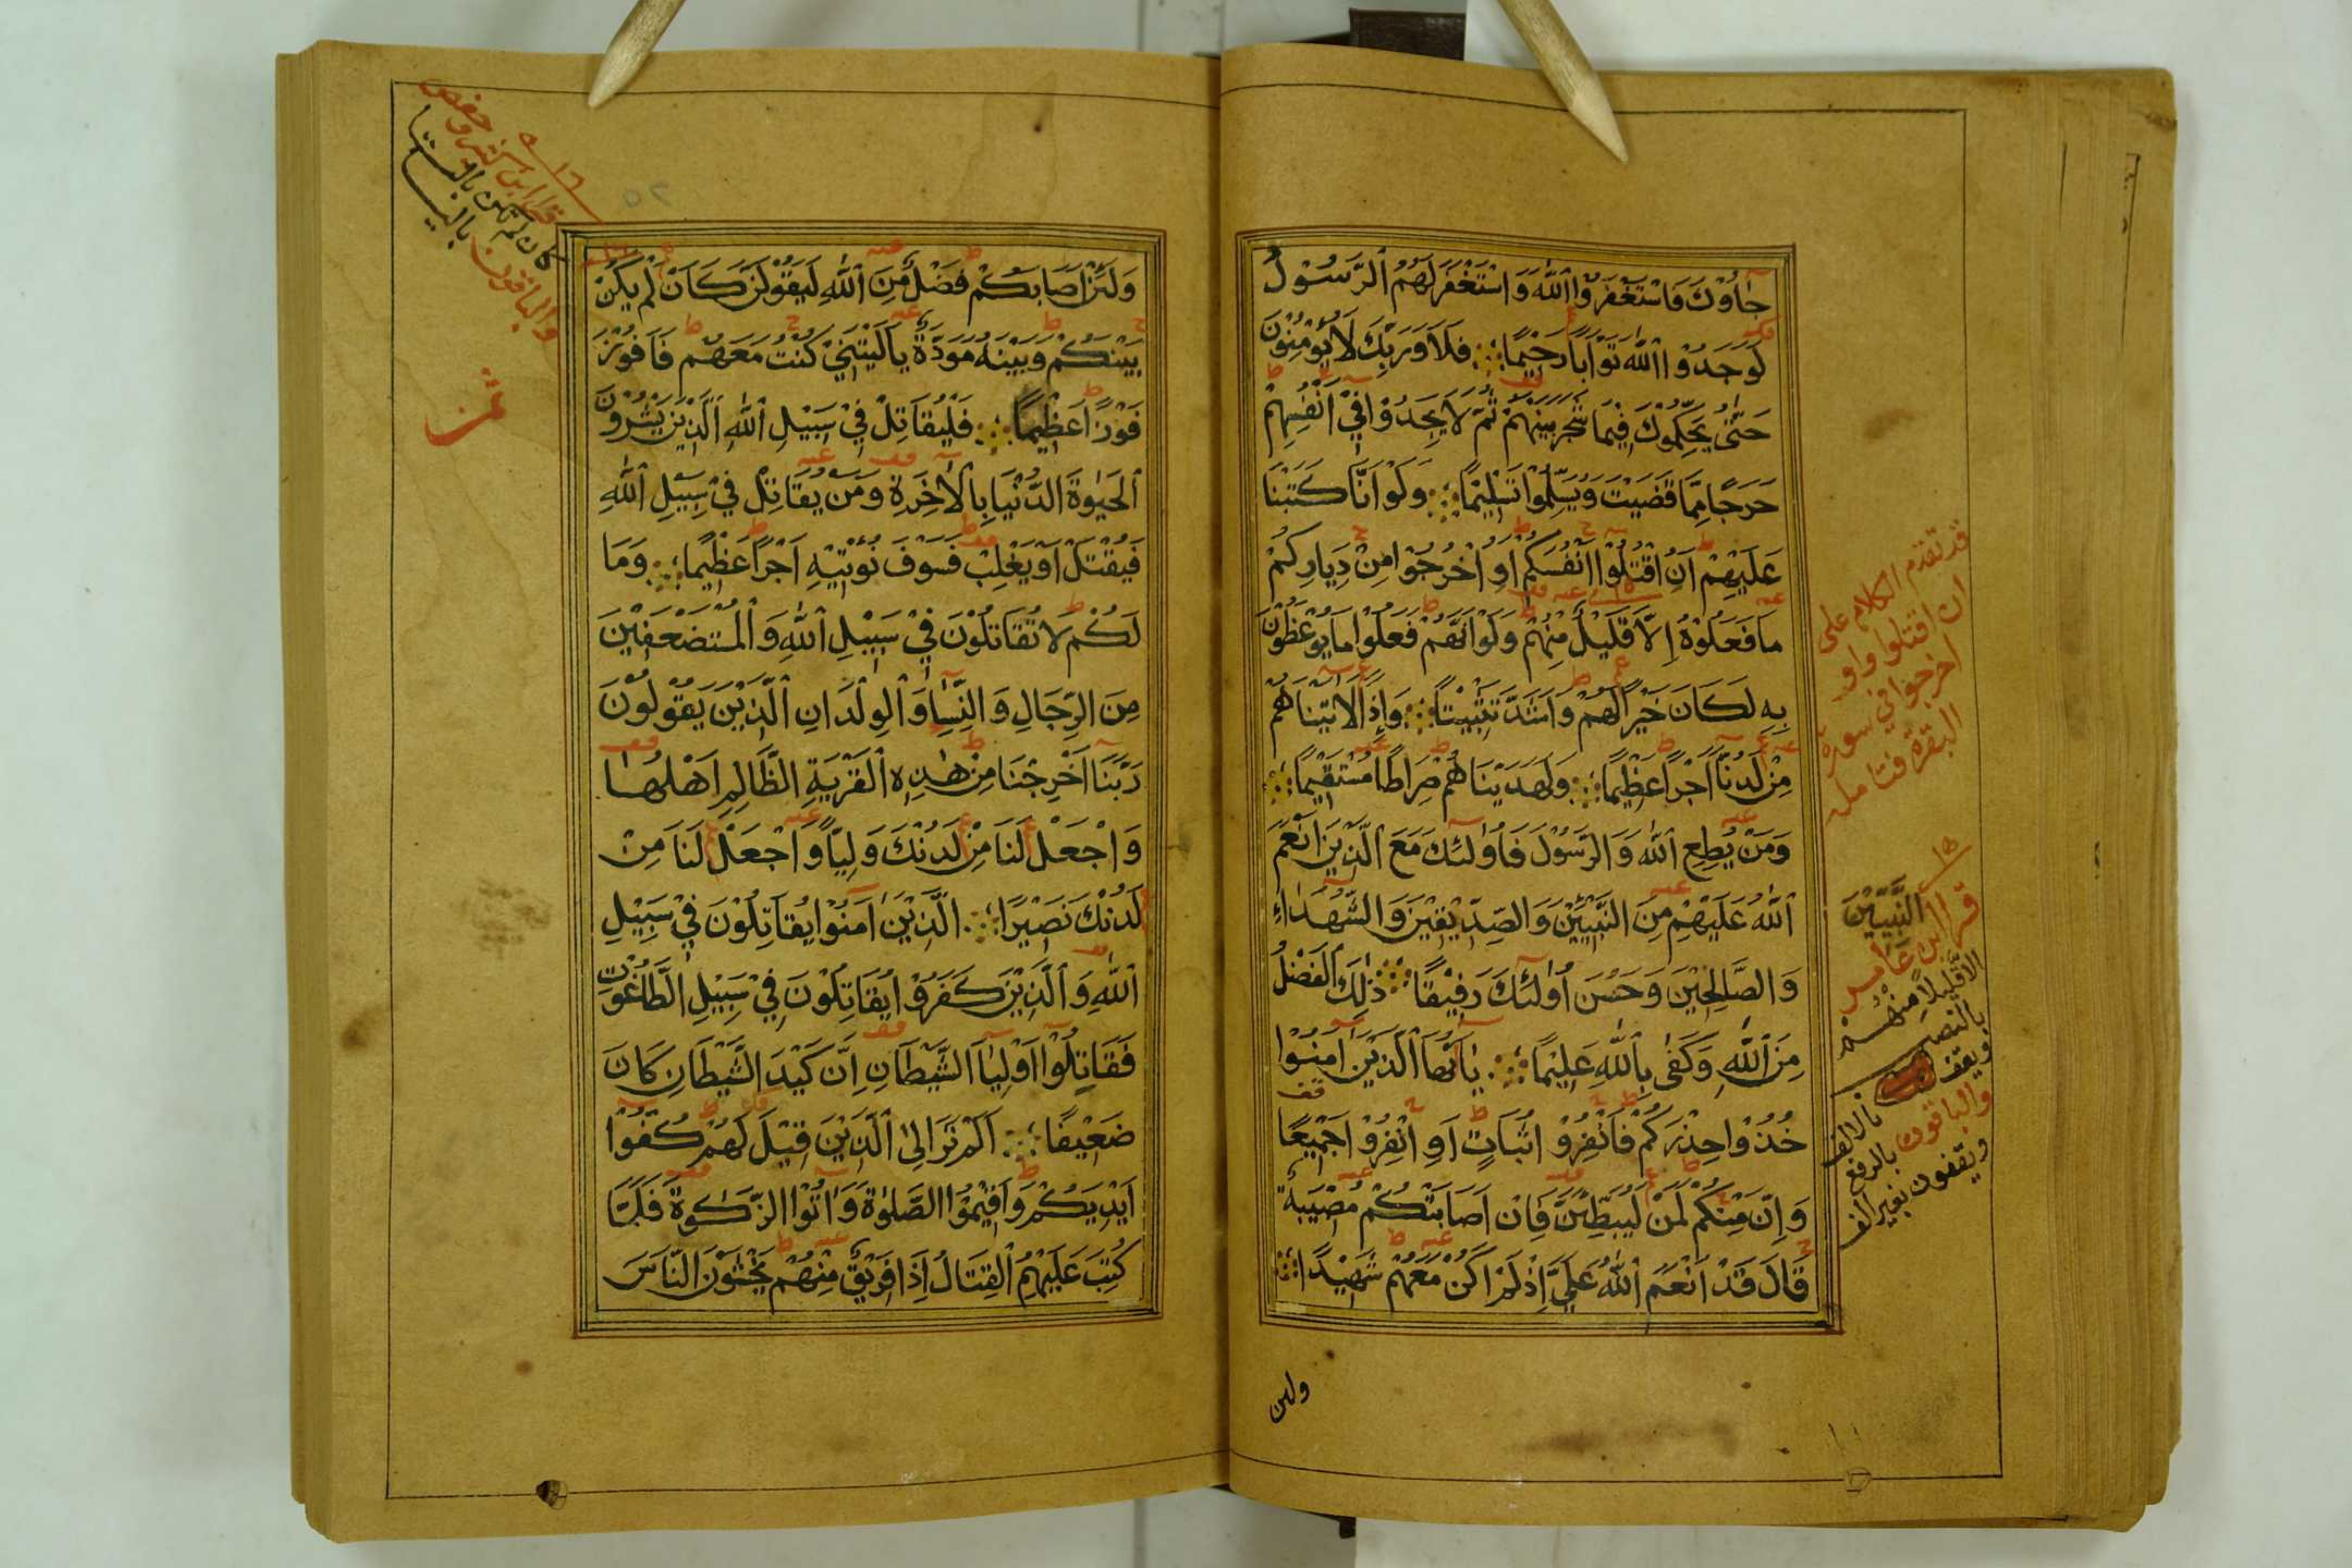 جَاؤُكَ فَاسْتَغْفَرُوا اللّٰهَ وَاسْتَغْفَرَ لَهُمُ الرَّسُولُ
لَوَجَدُوا اللّٰهَ تَوَّابًا رَحِيمًا فَلَا وَرَبِّكَ لَا يُؤْمِنُونَ
حَتّٰى يُحَكِّمُوكَ فِيمَا شَجَرَ بَيْنَهُمْ ثُمَّ لَا يَجِدُوا فِي أَنْفُسِهِمْ
حَرَجًا مِمَّا قَضَيْتَ وَيُسَلِّمُوا تَسْلِيمًا وَلَوْ أَنَّا كَتَبْنَا
عَلَيْهِمْ أَنِ اقْتُلُوا أَنْفُسَكُمْ أَوِ اخْرُجُوا مِنْ دِيَارِكُمْ
مَا فَعَلُوهُ إِلَّا قَلِيلٌ مِنْهُمْ وَلَوْ أَنَّهُمْ فَعَلُوا مَا يُوعَظُونَ
بِهِ لَكَانَ خَيْرًا لَهُمْ وَأَشَدَّ تَثْبِيتًا وَإِذًا لَآتَيْنَاهُمْ
مِنْ لَدُنَّا أَجْرًا عَظِيمًا وَلَهَدَيْنَاهُمْ صِرَاطًا مُسْتَقِيمًا
وَمَنْ يُطِعِ اللّٰهَ وَالرَّسُولَ فَأُولٰئِكَ مَعَ الَّذِينَ أَنْعَمَ
اللّٰهُ عَلَيْهِمْ مِنَ النَّبِيِّينَ وَالصِّدِّيقِينَ وَالشُّهَدَاءِ
وَالصَّالِحِينَ وَحَسُنَ أُولٰئِكَ رَفِيقًا ذٰلِكَ الْفَضْلُ
مِنَ اللّٰهِ وَكَفٰى بِاللّٰهِ عَلِيمًا يَا أَيُّهَا الَّذِينَ آمَنُوا
خُذُوا حِذْرَكُمْ فَانْفِرُوا ثُبَاتٍ أَوِ انْفِرُوا جَمِيعًا
وَإِنَّ مِنْكُمْ لَمَنْ لَيُبَطِّئَنَّ فَإِنْ أَصَابَتْكُمْ مُصِيبَةٌ
قَالَ قَدْ أَنْعَمَ اللّٰهُ عَلَيَّ إِذْ لَمْ أَكُنْ مَعَهُمْ شَهِيدًا
ولئن
قد تقدم الكلام على
ان اقتلوا واو
اخرجوا في سورة
البقرة فتامل
١٥
النَّبِيّينَ
قرا ابن عامر
الا قليلا منهم
بالنصب
ويقف
بالالف
والباقون بالرفع
ويقفون بغير الف
وَلَئِنْ أَصَابَكُمْ فَضْلٌ مِنَ اللّٰهِ لَيَقُولَنَّ كَأَنْ لَمْ يَكُنْ
بَيْنَكُمْ وَبَيْنَهُ مَوَدَّةٌ يَا لَيْتَنِي كُنْتُ مَعَهُمْ فَأَفُوزَ
فَوْزًا عَظِيمًا فَلْيُقَاتِلْ فِي سَبِيلِ اللّٰهِ الَّذِينَ يَشْرُونَ
الْحَيٰوةَ الدُّنْيَا بِالْآخِرَةِ وَمَنْ يُقَاتِلْ فِي سَبِيلِ اللّٰهِ
فَيُقْتَلْ أَوْ يَغْلِبْ فَسَوْفَ نُؤْتِيهِ أَجْرًا عَظِيمًا وَمَا
لَكُمْ لَا تُقَاتِلُونَ فِي سَبِيلِ اللّٰهِ وَالْمُسْتَضْعَفِينَ
مِنَ الرِّجَالِ وَالنِّسَاءِ وَالْوِلْدَانِ الَّذِينَ يَقُولُونَ
رَبَّنَا أَخْرِجْنَا مِنْ هٰذِهِ الْقَرْيَةِ الظَّالِمِ أَهْلُهَا
وَاجْعَلْ لَنَا مِنْ لَدُنْكَ وَلِيًّا وَاجْعَلْ لَنَا مِنْ
لَدُنْكَ نَصِيرًا الَّذِينَ آمَنُوا يُقَاتِلُونَ فِي سَبِيلِ
اللّٰهِ وَالَّذِينَ كَفَرُوا يُقَاتِلُونَ فِي سَبِيلِ الطَّاغُوتِ
فَقَاتِلُوا أَوْلِيَاءَ الشَّيْطَانِ إِنَّ كَيْدَ الشَّيْطَانِ كَانَ
ضَعِيفًا أَلَمْ تَرَ إِلَى الَّذِينَ قِيلَ لَهُمْ كُفُّوا
أَيْدِيَكُمْ وَأَقِيمُوا الصَّلٰوةَ وَآتُوا الزَّكٰوةَ فَلَمَّا
كُتِبَ عَلَيْهِمُ الْقِتَالُ إِذَا فَرِيقٌ مِنْهُمْ يَخْشَوْنَ النَّاسَ
١٦
قرا ابن كثير وحفص
كان لم تكن بالتا
والباقون باليا
ثمن